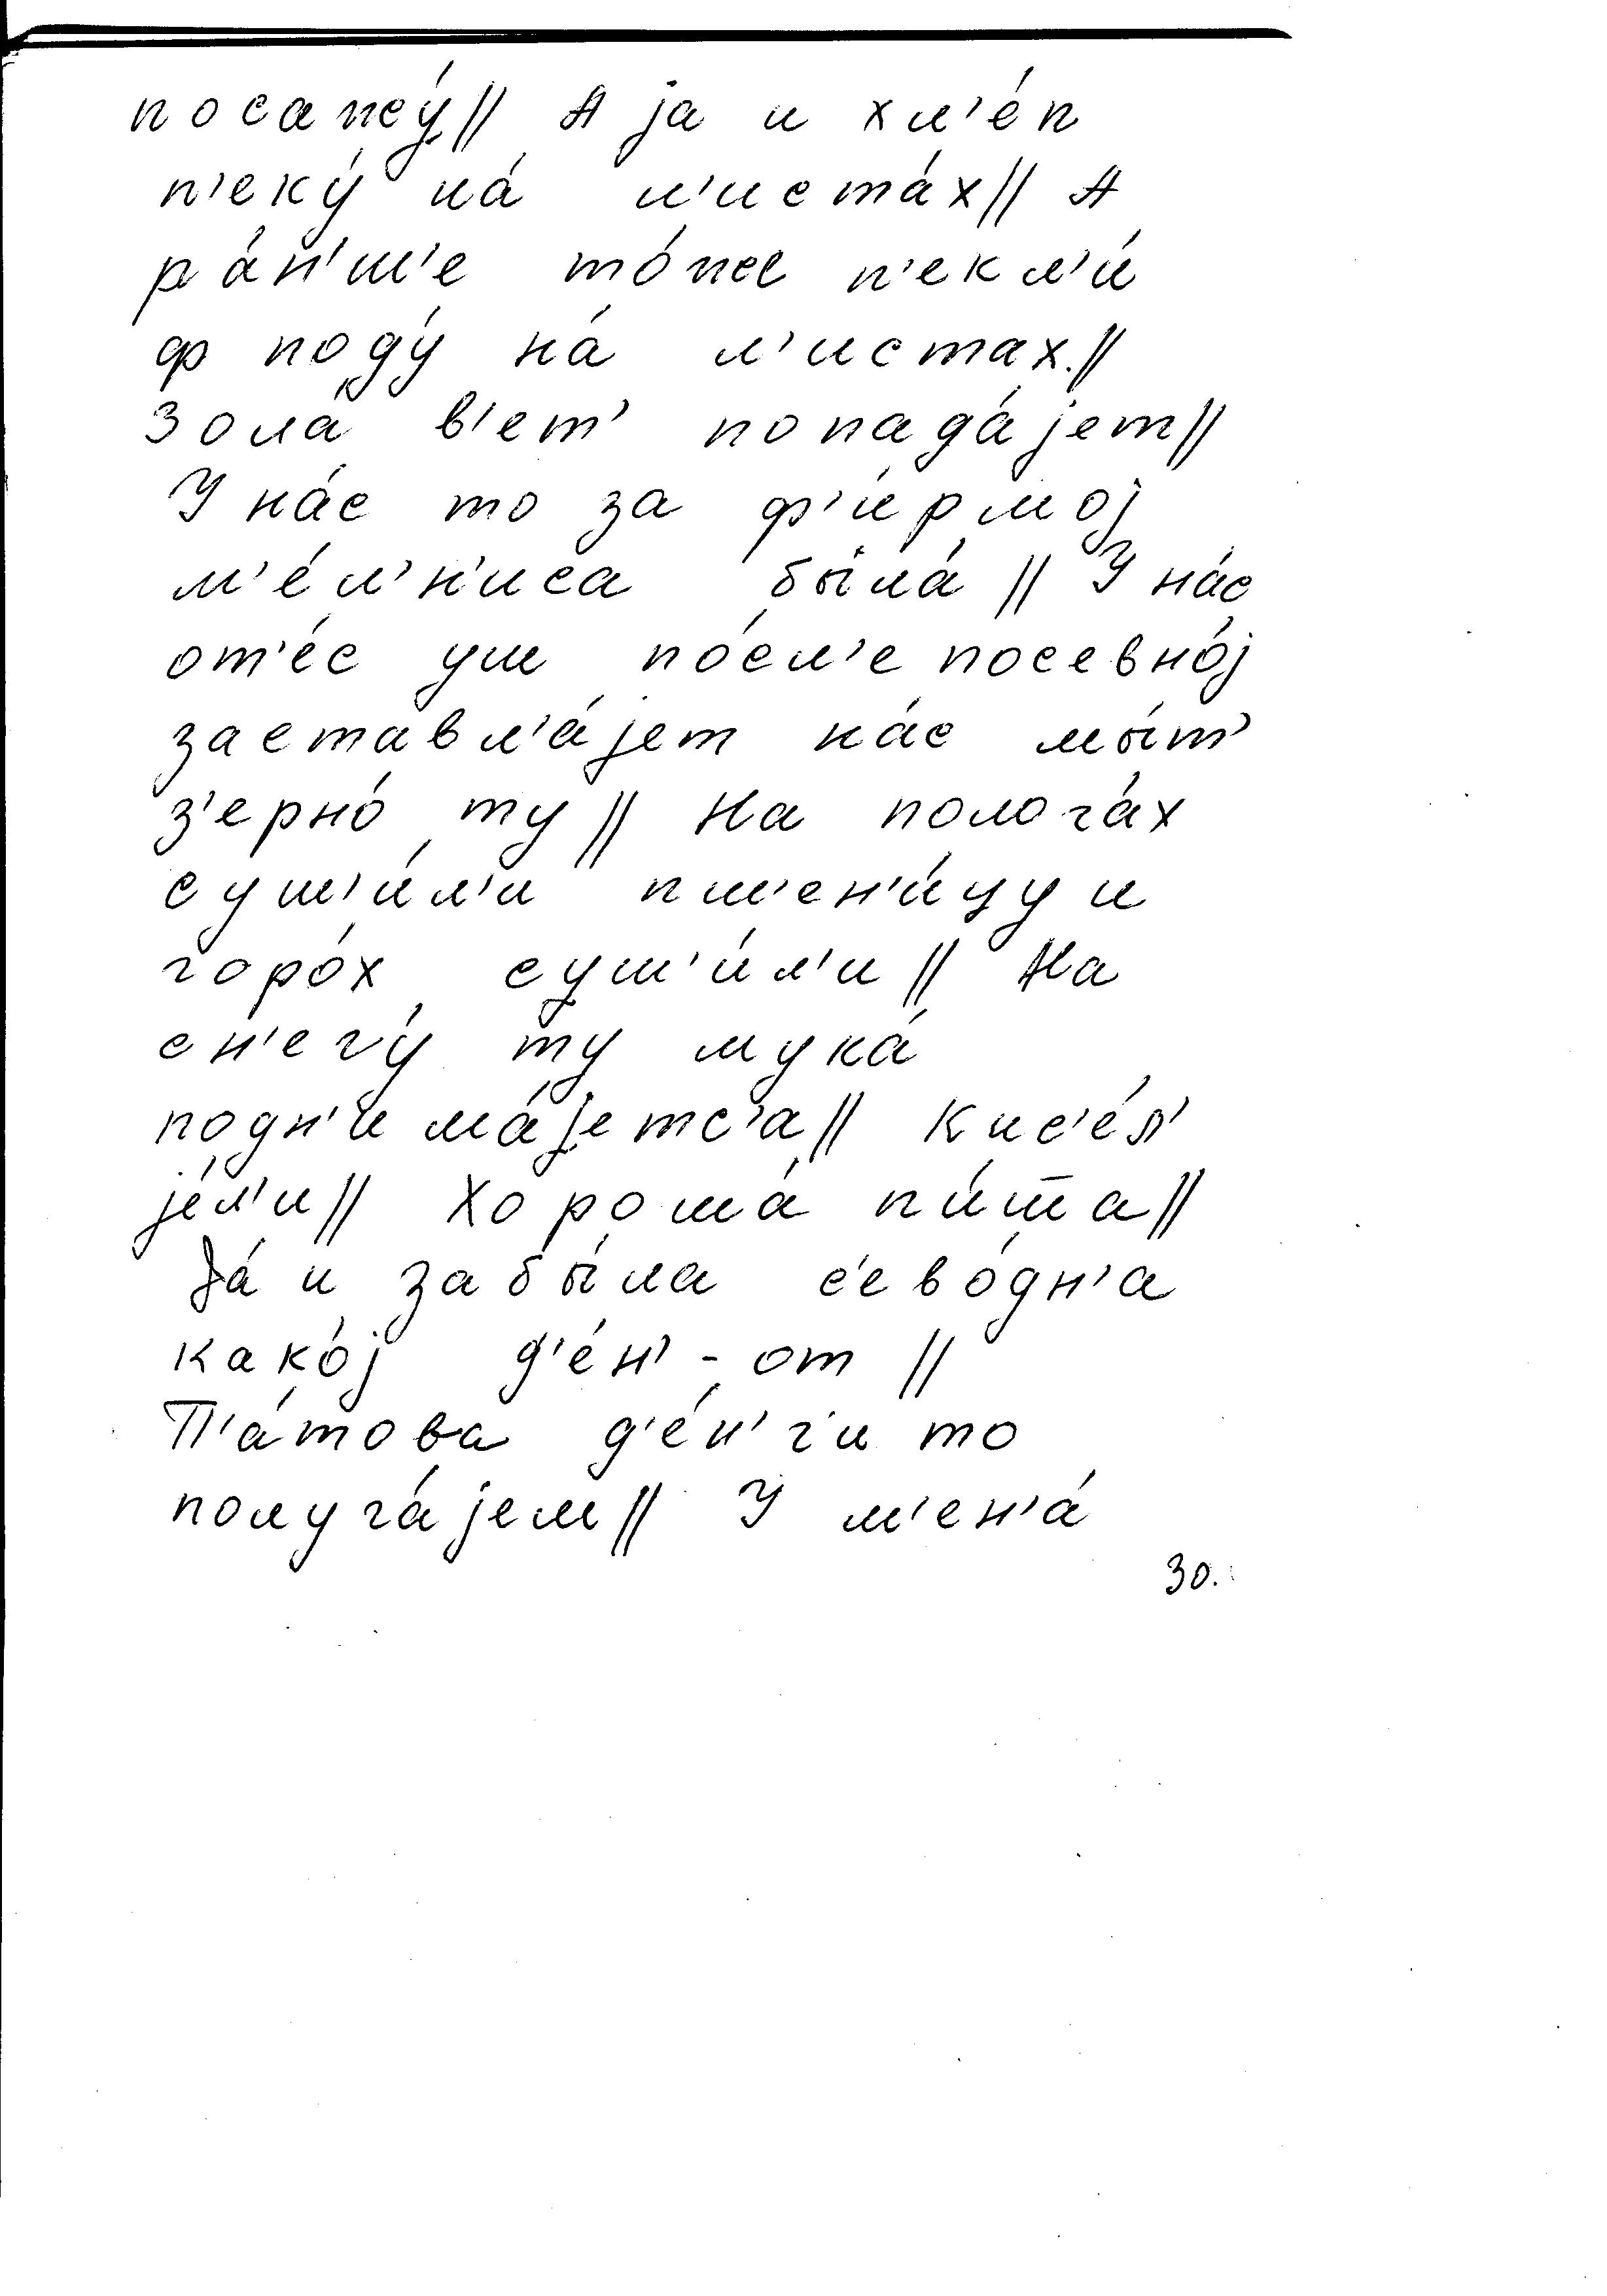 А jа и хл'éп
п'екý нá л'истáх// А
рáн'ш'е тó п'екл'и́
ф подý нá л'истах.//
Золá в'ет' попадáјет//
У нáс то за ф'и́рмој
м'éл'н'иса бы́лá // У нáс
от'éс уш пóсл'е посевнóј
заставл'áјет нáс мы́т'
з'ернó ту // На пологáх
суш'и́л'и пш'ен'и́цу и
горóх суш'и́л'и // На
сн'егý ту мукá
подн'имáјетс'а// Кис'éл'
јéл'и// Хорошá пи́ша//
Дá и забы́ла с'евóдн'а
какóј д'éн'-от //
П'áтова д'éн'г'и то
получáјем// У м'ен'á
30.